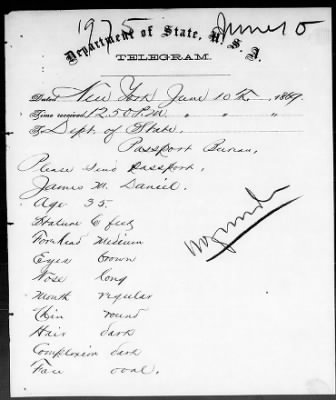 1975 June 10
Department of State, U.S.A.
TELEGRAM.
Dated New York June 10th, 1869.
Time received 12.50 P.m " " "
To Dept. of State.
Passport Bureau,
Please send Passport,
James M. Daniel.
Age 35.
Stature 6 feet
Forehead Medium
Eyes brown
Nose long
Mouth regular
Chin round
Hair dark
Complexion dark
Face oval.